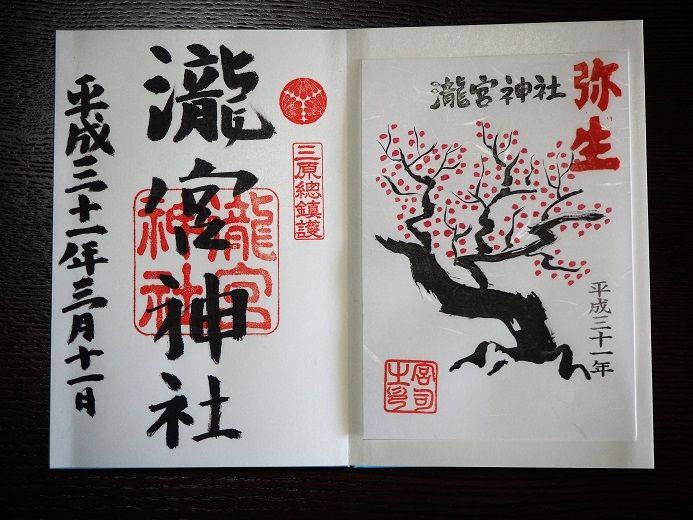 弥生
瀧宮神社
平成三十一年
宮司
之印
三原總鎮護
瀧宮神社
瀧宮
神社
平成三十一年三月十一日